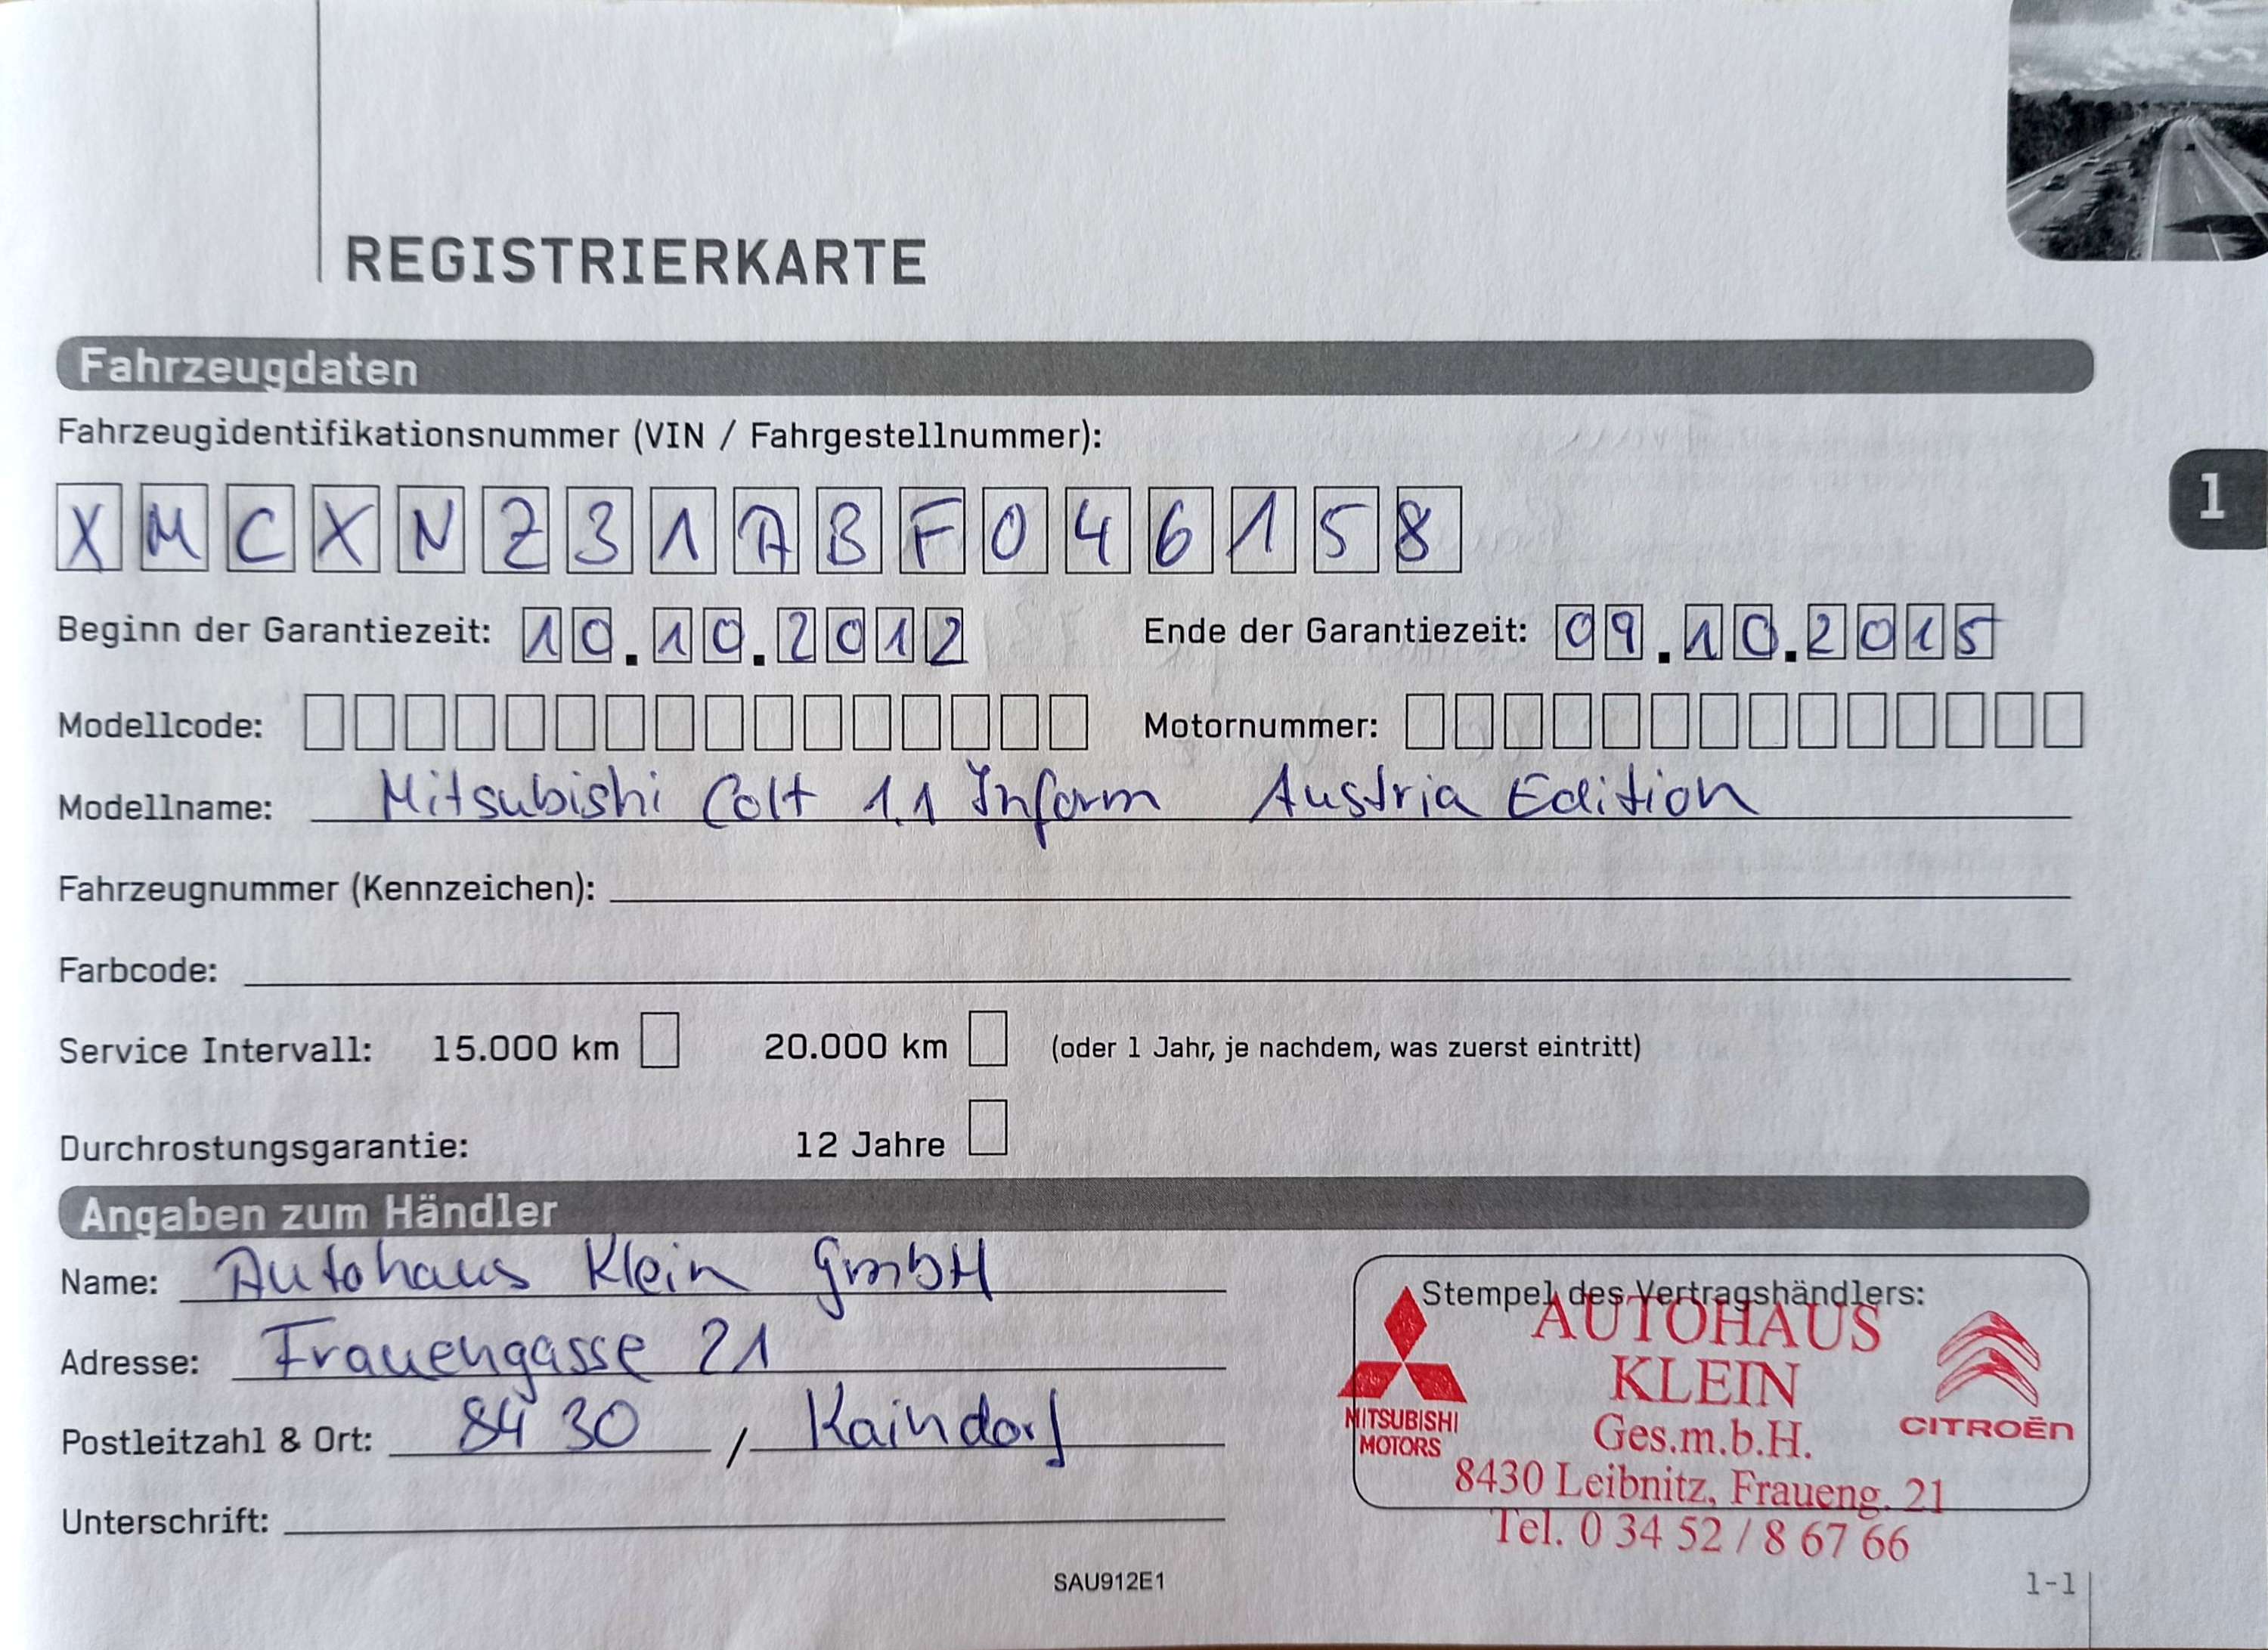 REGISTRIERKARTE
Fahrzeugdaten
Fahrzeugidentifikationsnummer (VIN / Fahrgestellnummer):
XMCXNZ31ABF046158
1
Beginn der Garantiezeit: 10.10.2012 Ende der Garantiezeit: 09.10.2015
Modellcode: Motornummer:
Modellname: Mitsubishi Colt 1.1 Inform Austria Edition
Fahrzeugnummer (Kennzeichen):
Farbcode:
Service Intervall: 15.000 km 20.000 km (oder 1 Jahr, je nachdem, was zuerst eintritt)
Durchrostungsgarantie: 12 Jahre
Angaben zum Händler
Name: Autohaus Klein GmbH
Adresse: Frauengasse 21
Postleitzahl & Ort: 8430 / Kaindorf
Unterschrift:
Stempel des Vertragshändlers:
AUTOHAUS
KLEIN
Ges.m.b.H.
8430 Leibnitz, Fraueng. 21
Tel. 0 34 52 / 8 67 66
MITSUBISHI
MOTORS
CITROËN
SAU912E1
1-1